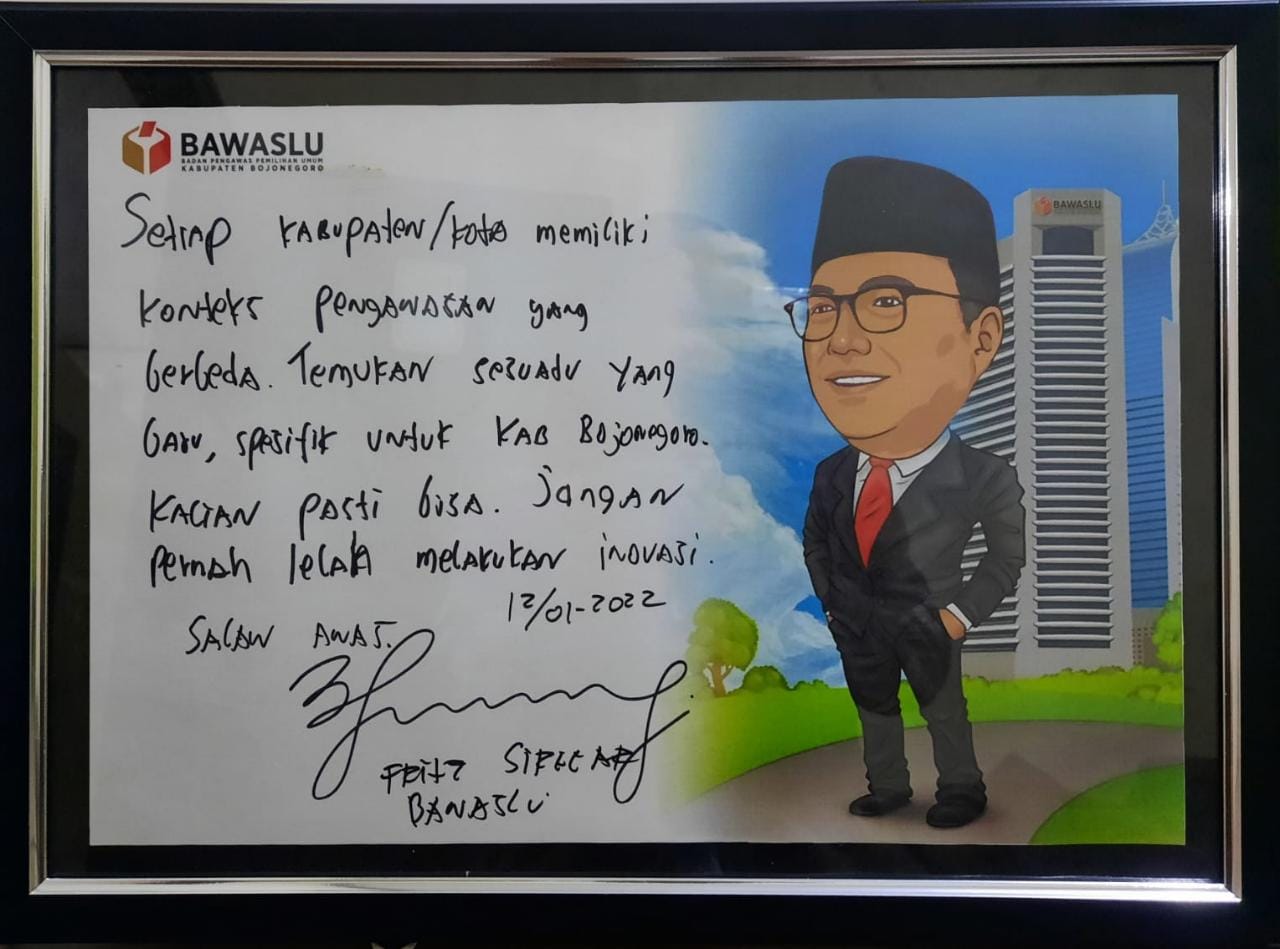 BAWASLU
BADAN PENGAWAS PEMILIHAN UMUM
KABUPATEN BOJONEGORO
Setiap KABUPATEN/KOTA memiliki
Konteks PENGAWASAN yang
berbeda. Temukan sesuatu yang
baru, spesifik untuk KAB Bojonegoro.
KALIAN pasti bisa. Jangan
pernah lelah melakukan inovasi.
12/01-2022
SALAM AWAS.
FRITZ SIREGAR
BAWASLU
BAWASLU